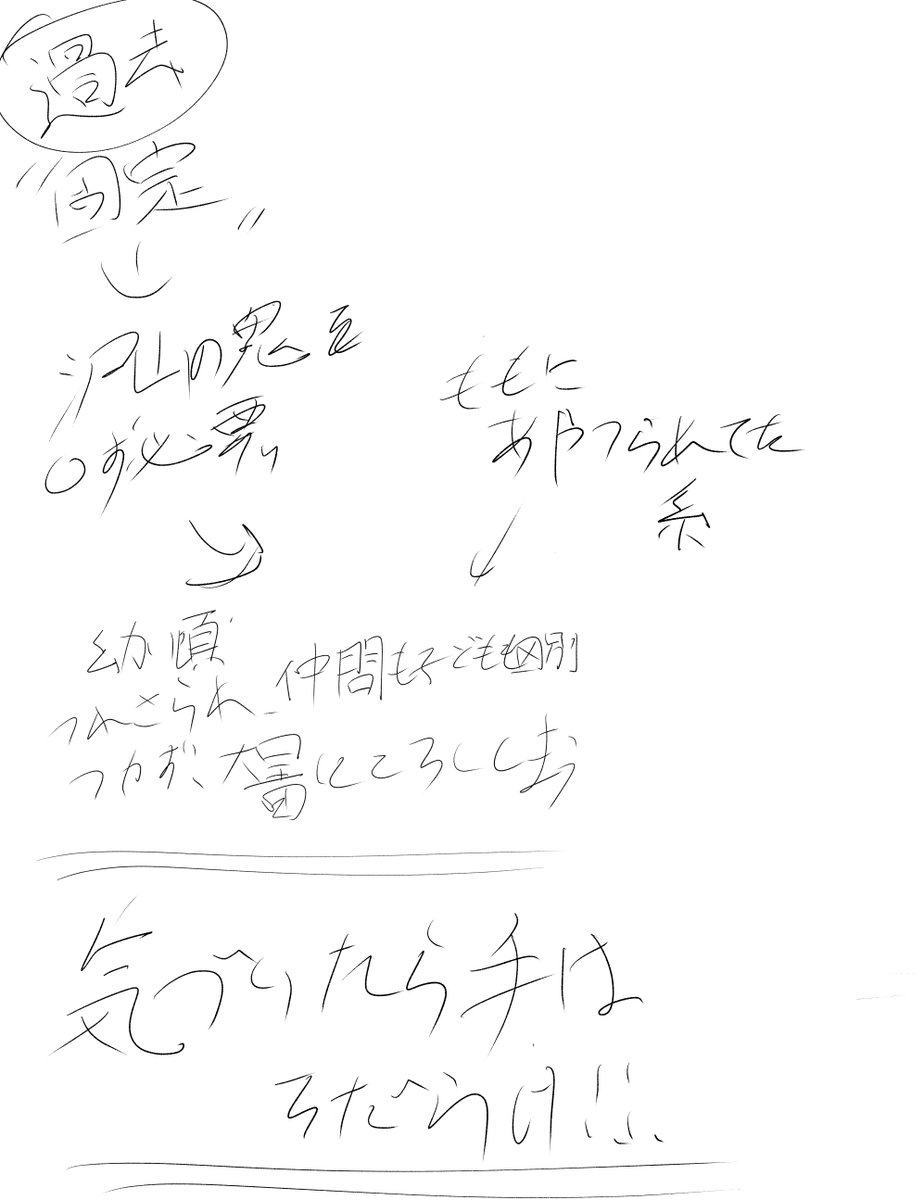 過去
"固定"
沢山の鬼を
○す必要
ももに
あやつられてた
糸
幼い頃
つれさられ 仲間も子ども区別
つかず、大量にころしてしまう
気づいたら手は
ろだらけ!!